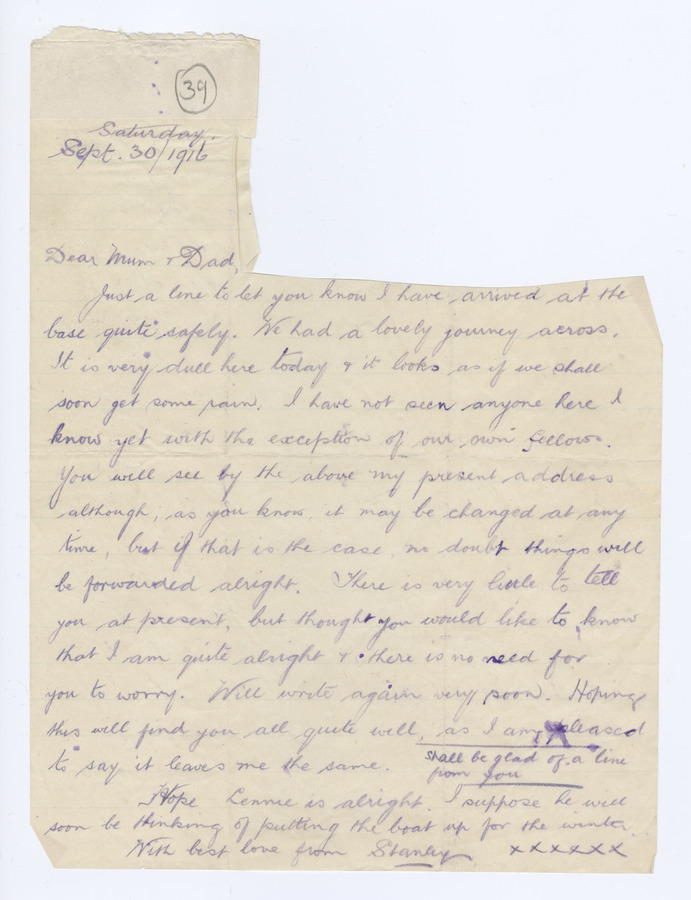 39
Saturday.
Sept. 30/1916
Dear Mum & Dad,
Just a line to let you know I have arrived at the
base quite safely. We had a lovely journey across.
It is very dull here today & it looks as if we shall
soon get some rain. I have not seen anyone here I
know yet with the exception of our own fellows.
You will see by the above my present address
although, as you know, it may be changed at any
time, but if that is the case, no doubt things will
be forwarded alright. There is very little to tell
you at present, but thought you would like to know
that I am quite alright & there is no need for
you to worry. Will write again very soon. Hoping
this will find you all quite well, as I am pleased
to say it leaves me the same.
shall be glad of a line
from you
Hope Lennie is alright. I suppose he will
soon be thinking of putting the boat up for the winter.
With best love from Stanley xxxxxx